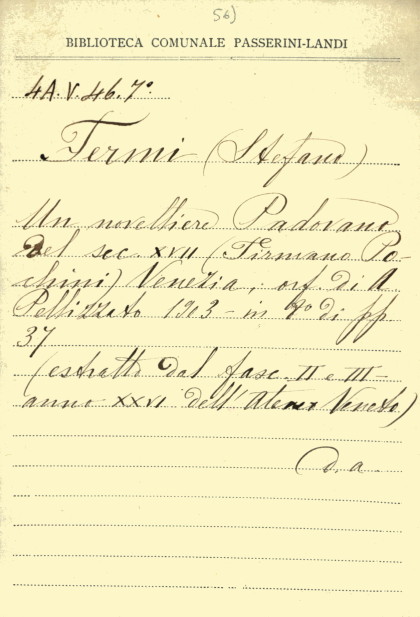 56)
BIBLIOTECA COMUNALE PASSERINI-LANDI
4A.V.46.7º
Fermi (Stefano)
Un novelliere Padovano
del sec. XVII (Firmano Po-
chini) Venezia, orf. di A
Pellizzato 1903 - in 8º di pp
37
(estratto dal fasc. II e III -
anno XXVI dell'Ateneo Veneto)
d. a.